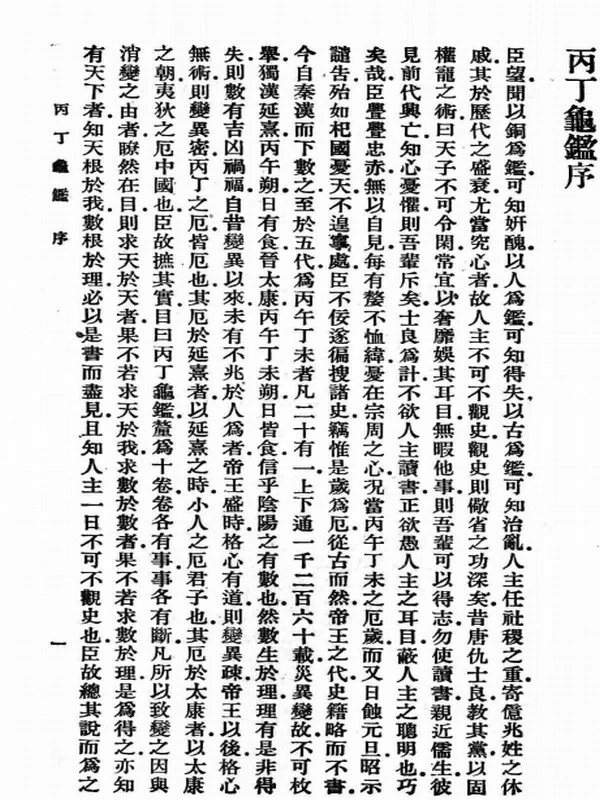 丙丁龜鑑序
臣望聞以銅爲鑑可知妍醜以人爲鑑可知得失以古爲鑑可知治亂人主任社稷之重寄億兆姓之休
戚其於歷代之盛衰尤當究心者故人主不可不觀史觀史則儆省之功深矣昔唐仇士良教其黨以固
權寵之術曰天子不可令閑常宜以奢靡娛其耳目無暇他事則吾輩可以得志勿使讀書親近儒生彼
見前代興亡知心憂懼則吾輩斥矣士良爲計不欲人主讀書正欲愚人主之耳目蔽人主之聰明也巧
矣哉臣亹亹忠赤無以自見每有嫠不恤緯憂在宗周之心況當丙午丁未之厄歲而又日蝕元旦昭示
譴告殆如杞國憂天不遑寧處臣不佞遂徧搜諸史竊惟是歲爲厄從古而然帝王之代史籍略而不書
今自秦漢而下數之至於五代爲丙午丁未者凡二十有一上下通一千二百六十載災異變故不可枚
舉獨漢延熹丙午朔日有食晉太康丙午丁未朔日皆食信乎陰陽之有數也然數生於理理有是非得
失則數有吉凶禍福自昔變異以來未有不兆於人爲者帝王盛時格心有道則變異疎帝王以後格心
無術則變異密丙丁之厄皆厄也其厄於延熹者以延熹之時小人之厄君子也其厄於太康者以太康
之朝夷狄之厄中國也臣故摭其實目曰丙丁龜鑑釐爲十卷卷各有事事各有斷凡所以致變之因與
消變之由者瞭然在目則求天於天者果不若求天於我求數於數者果不若求數於理是爲得之亦知
有天下者知天根於我數根於理必以是書而盡見且知人主一日不可不觀史也臣故總其說而爲之
丙丁龜鑑 序
一